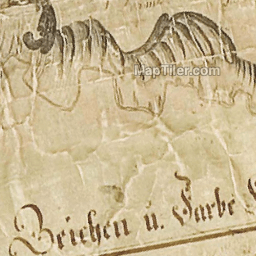 MapTiler.com
Zeichen u. Farbe